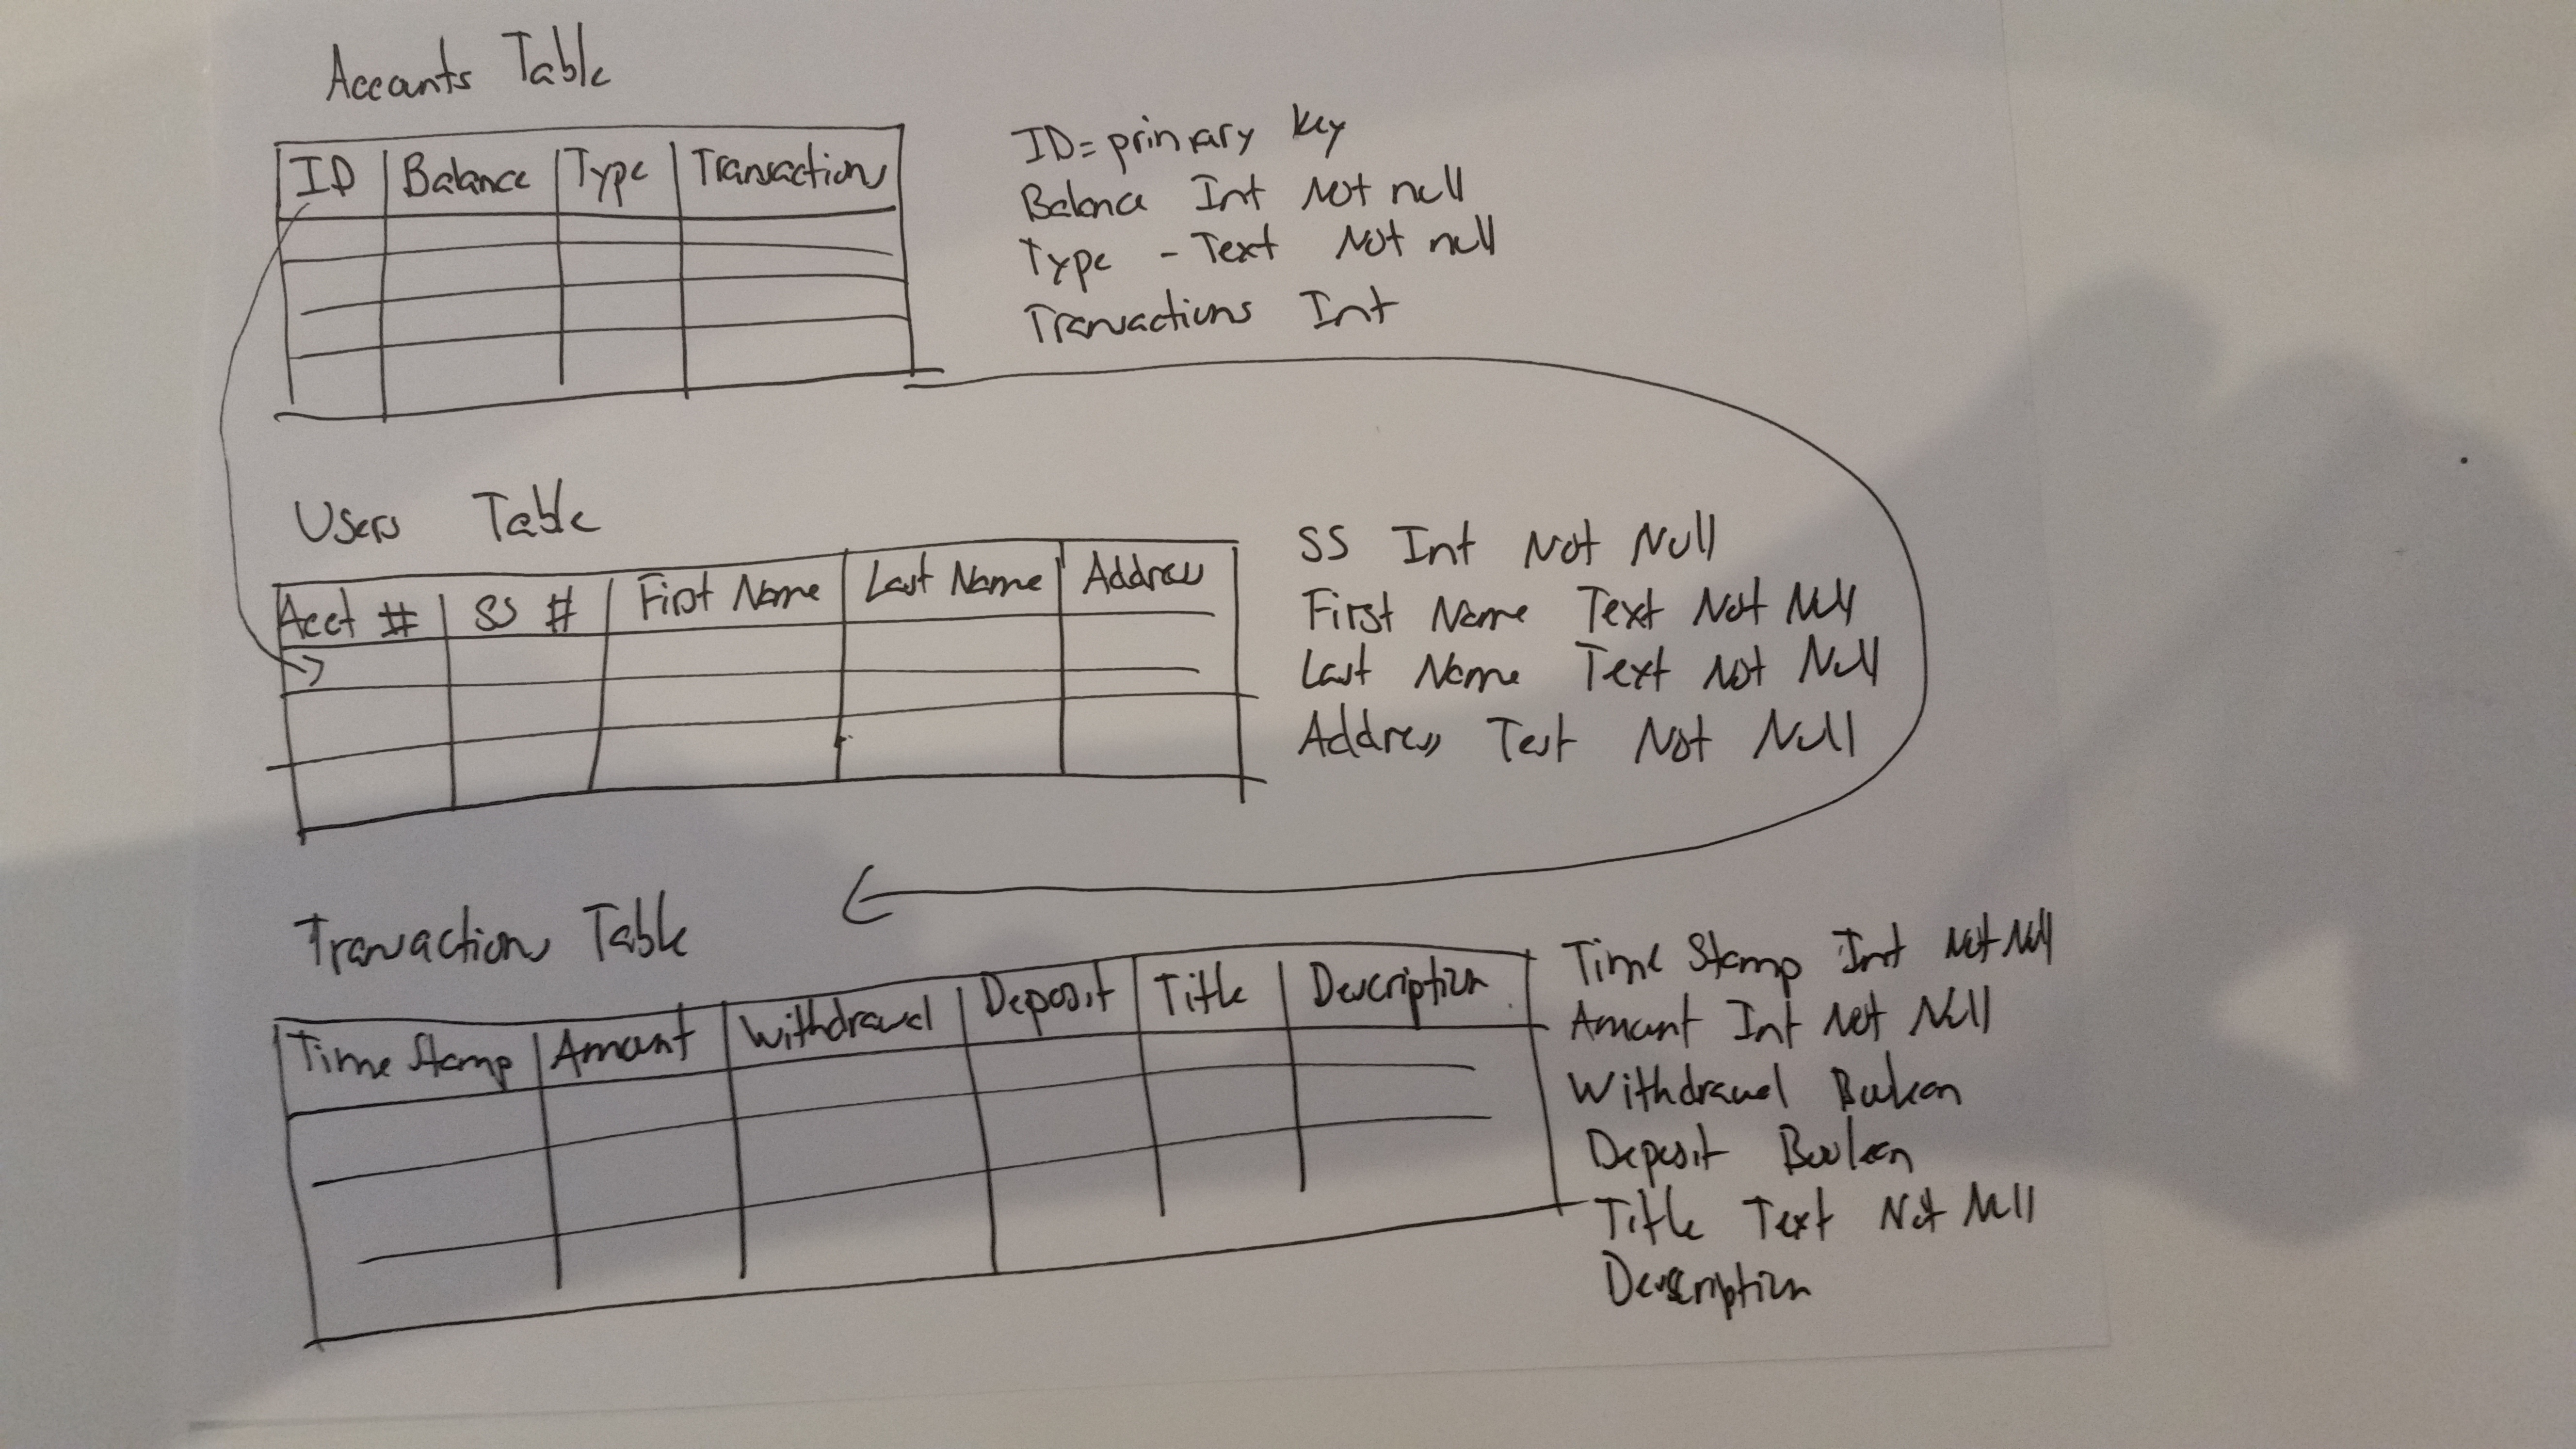 Accounts Table
ID Balance Type Transactions
ID = primary key
Balance Int Not null
Type - Text Not null
Transactions Int
Users Table
Acct # SS # First Name Last Name Address
SS Int Not Null
First Name Text Not Null
Last Name Text Not Null
Address Text Not Null
Transactions Table
Time Stamp Amount Withdrawal Deposit Title Description
Time Stamp Int Not Null
Amount Int Not Null
Withdrawal Boolean
Deposit Boolean
Title Text Not Null
Description